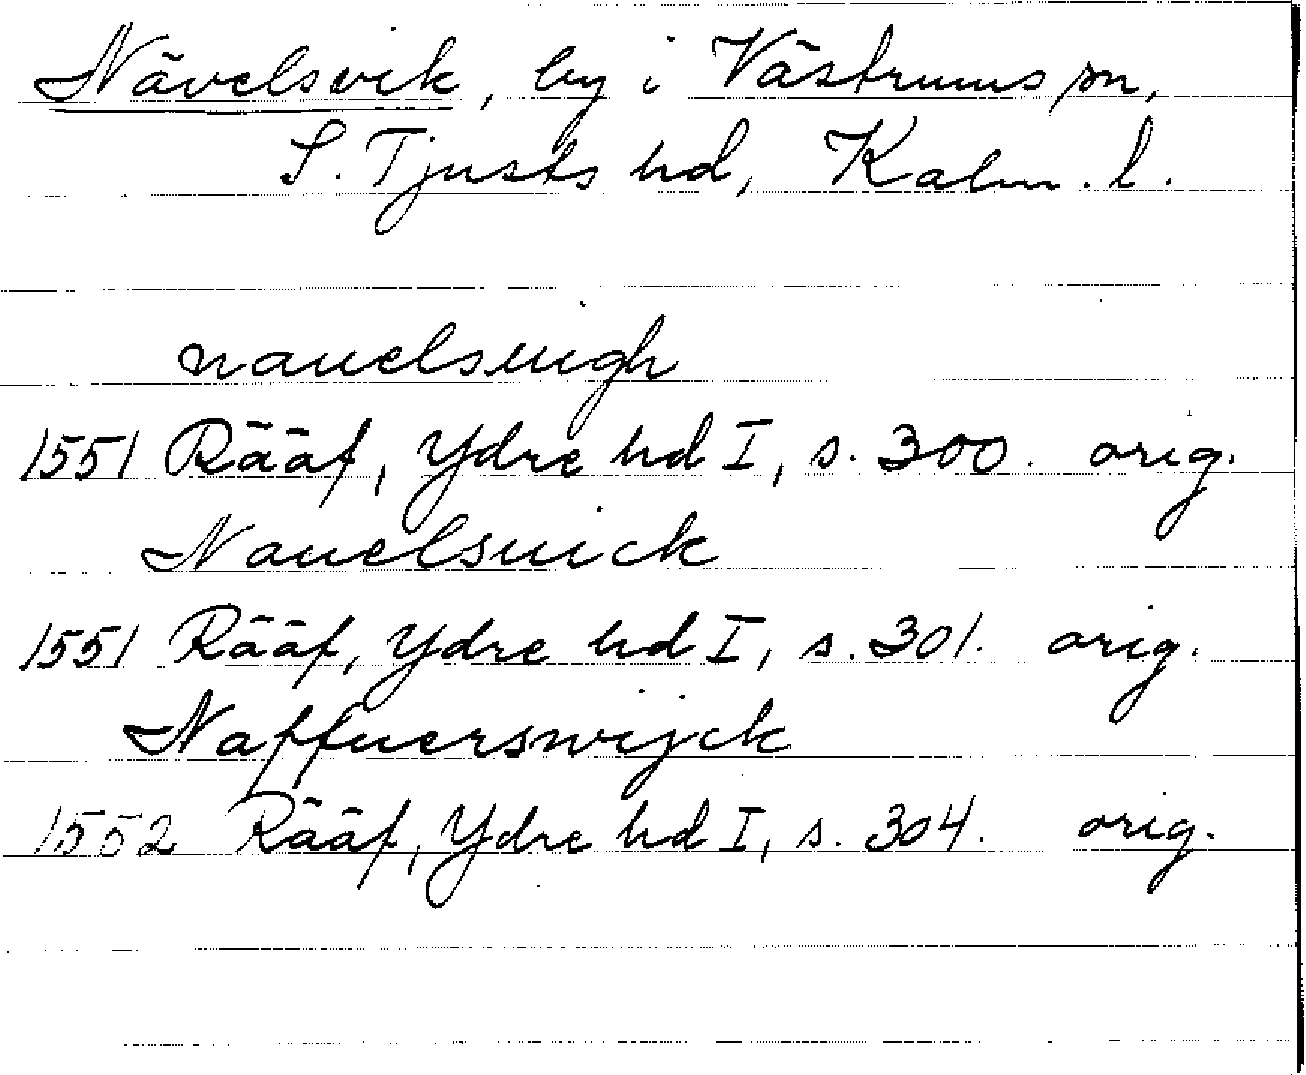 Nävelsvik, by i Västrums sn,
S. Tjusts hd, Kalm. l.
nauelsuigh
1551 Rääf, Ydre hd I, s. 300. orig.
Nauelsuick
1551 Rääf, Ydre hd I, s. 301. orig.
Naffuerswijck
1552 Rääf, Ydre hd I, s. 304. orig.